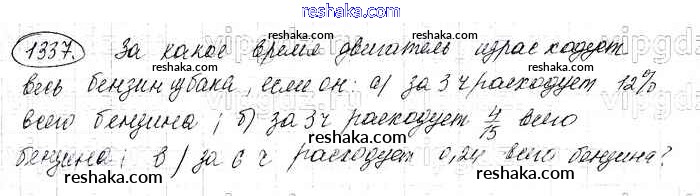 1337. За какое время двигатель израсходует
весь бензин из бака, если он: а) за 3 ч расходует 12%
всего бензина; б) за 3 ч расходует 4/15 всего
бензина; в) за 6 ч расходует 0,24 всего бензина?
reshaka.ru
reshaka.ru
reshaka.ru
reshaka.ru
reshaka.ru
reshaka.ru
reshaka.ru